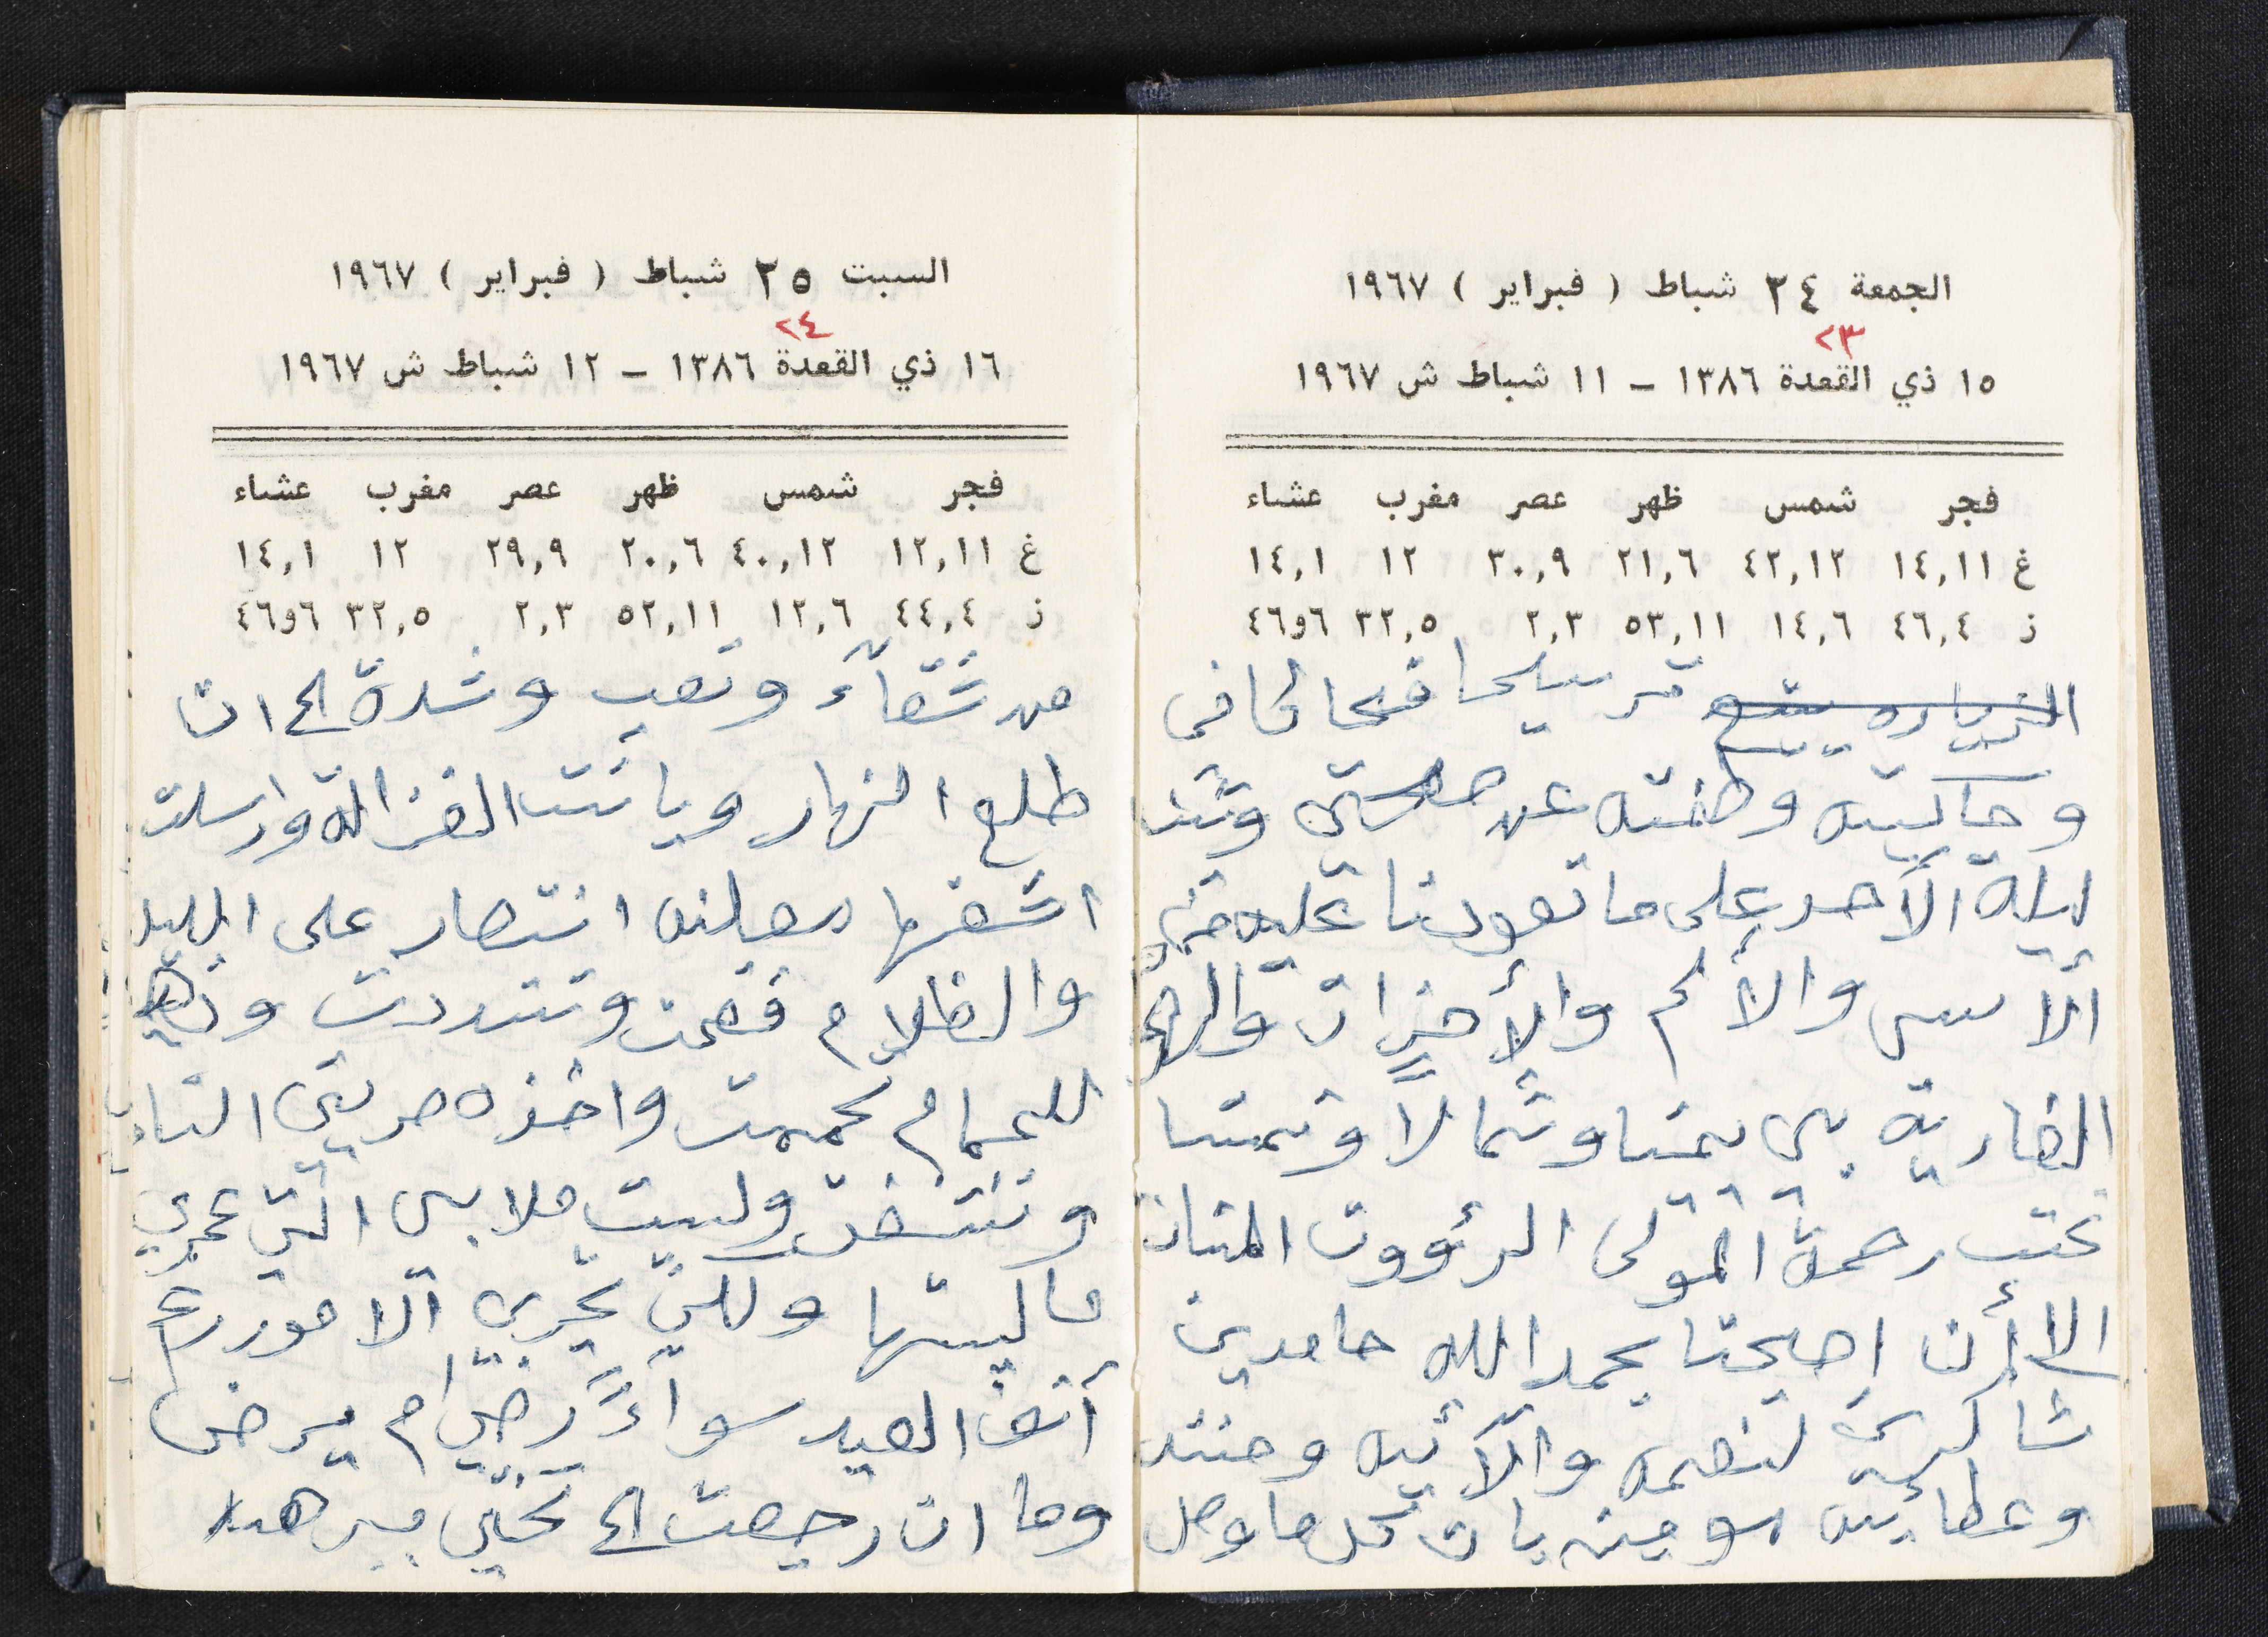 الجمعة ٢٤ شباط ( فبراير ) ١٩٦٧
٢٣
١٥ ذي القعدة ١٣٨٦ – ١١ شباط ش ١٩٦٧
فجر شمس ظهر عصر مغرب عشاء
غ ١٤,١١ ٤٢,١٢ ٢١,٦ ٣٠,٩ ١٢ ١٤,١
ز ٤٦,٤ ١٤,٦ ٥٣,١١ ٢,٣ ٣٢,٥ ٤٦و٦
الزيارة
وحاكيته عن صحتي وتنا
ليلة الأحد على ما تعودنا عليه من
الأسى والألم والأحزان
الضارية بي يمينا وشمالا ونمنا
تحت رحمة المولى الرؤوف المنان
إلا أن اصبحنا بحمد الله حامدين
شاكرين لنعمه وآلائه ومننه
وعطائه مؤمنين بان كل ما وصل
السبت ٢٥ شباط ( فبراير ) ١٩٦٧
٢٤
١٦ ذي القعدة ١٣٨٦ – ١٢ شباط ش ١٩٦٧
فجر شمس ظهر عصر مغرب عشاء
غ ١٢,١١ ٤٠,١٢ ٢٠,٦ ٢٩,٩ ١٢ ١٤,١
ز ٤٤,٤ ١٢,٦ ٥٢,١١ ٢,٣ ٣٢,٥ ٤٦و٦
من شقآء وتعب وشدة الى ان
طلع النهار وبانت الغزالة وارسلت
اشعتها معلنه انتصار على الليل
والظلام فقمت وذهبت
للحمام تحممت واخذه حريتي التامة
وتنشفت ولبست ملابسي التي عمري
ما لبستها ولكن تجري الامور رغم
أنف العبد سواءً رضي ام لم يرض
وما ان رجعت الى تختي